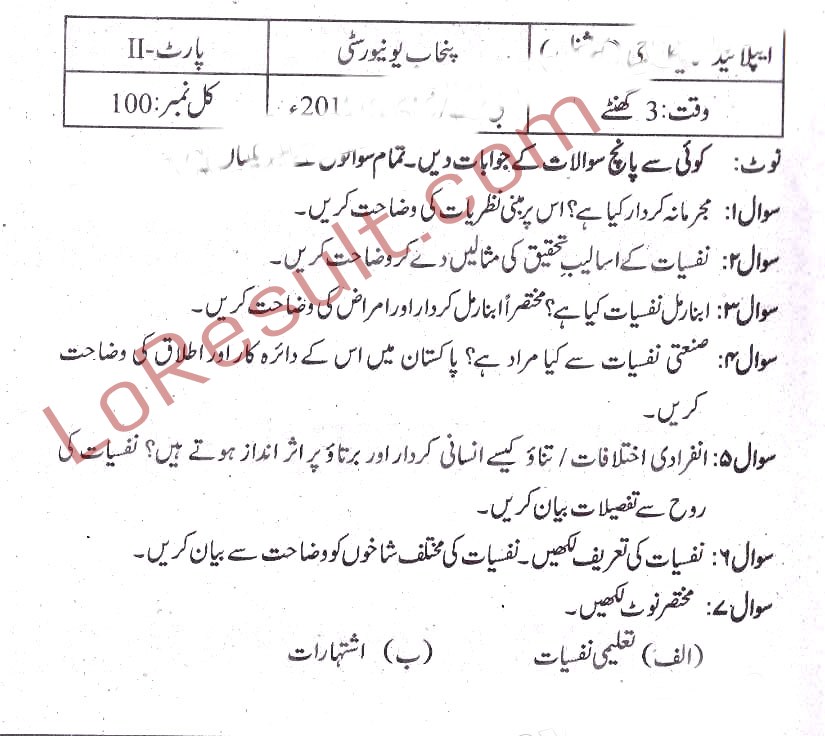 ایپلائیڈ
پنجاب یونیورسٹی
پارٹ-II
وقت: 3 گھنٹے
کل نمبر: 100
نوٹ: کوئی سے پانچ سوالات کے جوابات دیں۔ تمام سوالوں
سوال۱: مجرمانہ کردار کیا ہے؟ اس پر مبنی نظریات کی وضاحت کریں۔
سوال۲: نفسیات کے اسالیبِ تحقیق کی مثالیں دے کر وضاحت کریں۔
سوال۳: ابنارمل نفسیات کیا ہے؟ مختصراً ابنارمل کردار اور امراض کی وضاحت کریں۔
سوال۴: صنعتی نفسیات سے کیا مراد ہے؟ پاکستان میں اس کے دائرہ کار اور اطلاق کی وضاحت
کریں۔
سوال۵: انفرادی اختلافات / تناؤ کیسے انسانی کردار اور برتاؤ پر اثر انداز ہوتے ہیں؟ نفسیات کی
روح سے تفصیلات بیان کریں۔
سوال۶: نفسیات کی تعریف لکھیں۔ نفسیات کی مختلف شاخوں کو وضاحت سے بیان کریں۔
سوال۷: مختصر نوٹ لکھیں۔
(الف) تعلیمی نفسیات (ب) اشتہارات
LoResult.com